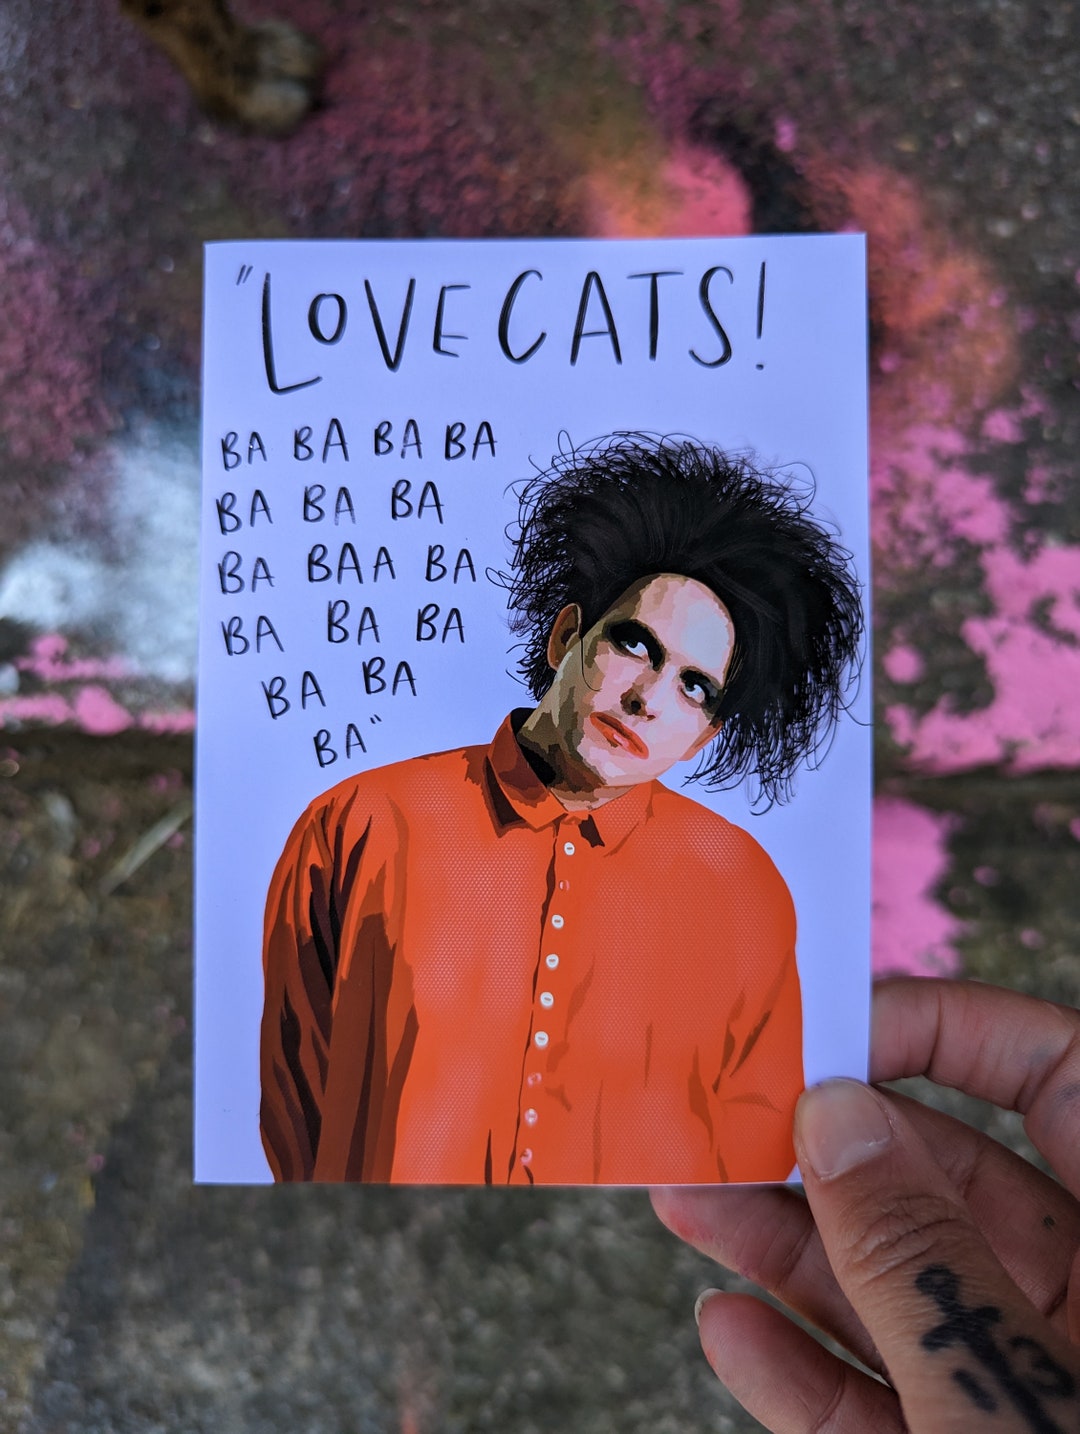 "LOVECATS!
BA BA BA BA
BA BA BA
BA BAA BA
BA BA BA
BA BA
BA"